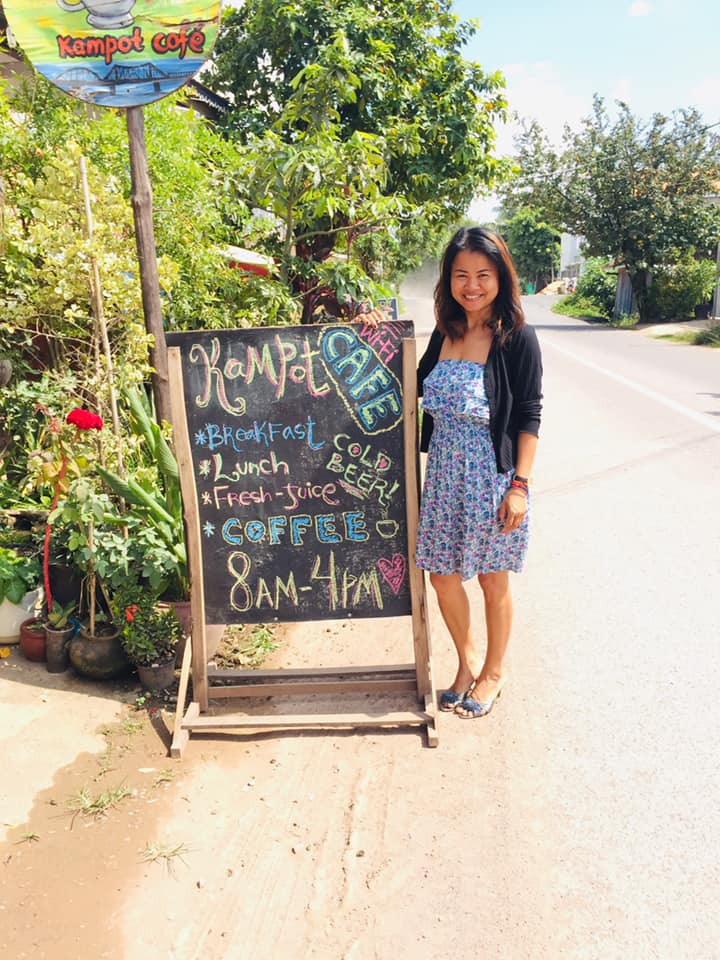 Kampot café
KamPot
CAFE
Wi-Fi
*BreakFast
*Lunch
*Fresh-Juice
COLD
BEER!
*COFFEE
8AM-4PM